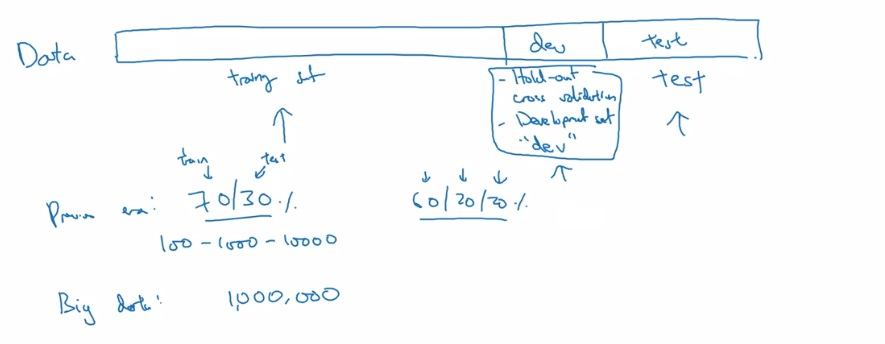 Data
dev
test
training set
- Hold-out
cross validation
- Development set
"dev"
test
train test
Previous era: 70/30% 60/20/20%
100 - 1000 - 10000
Big data: 1,000,000